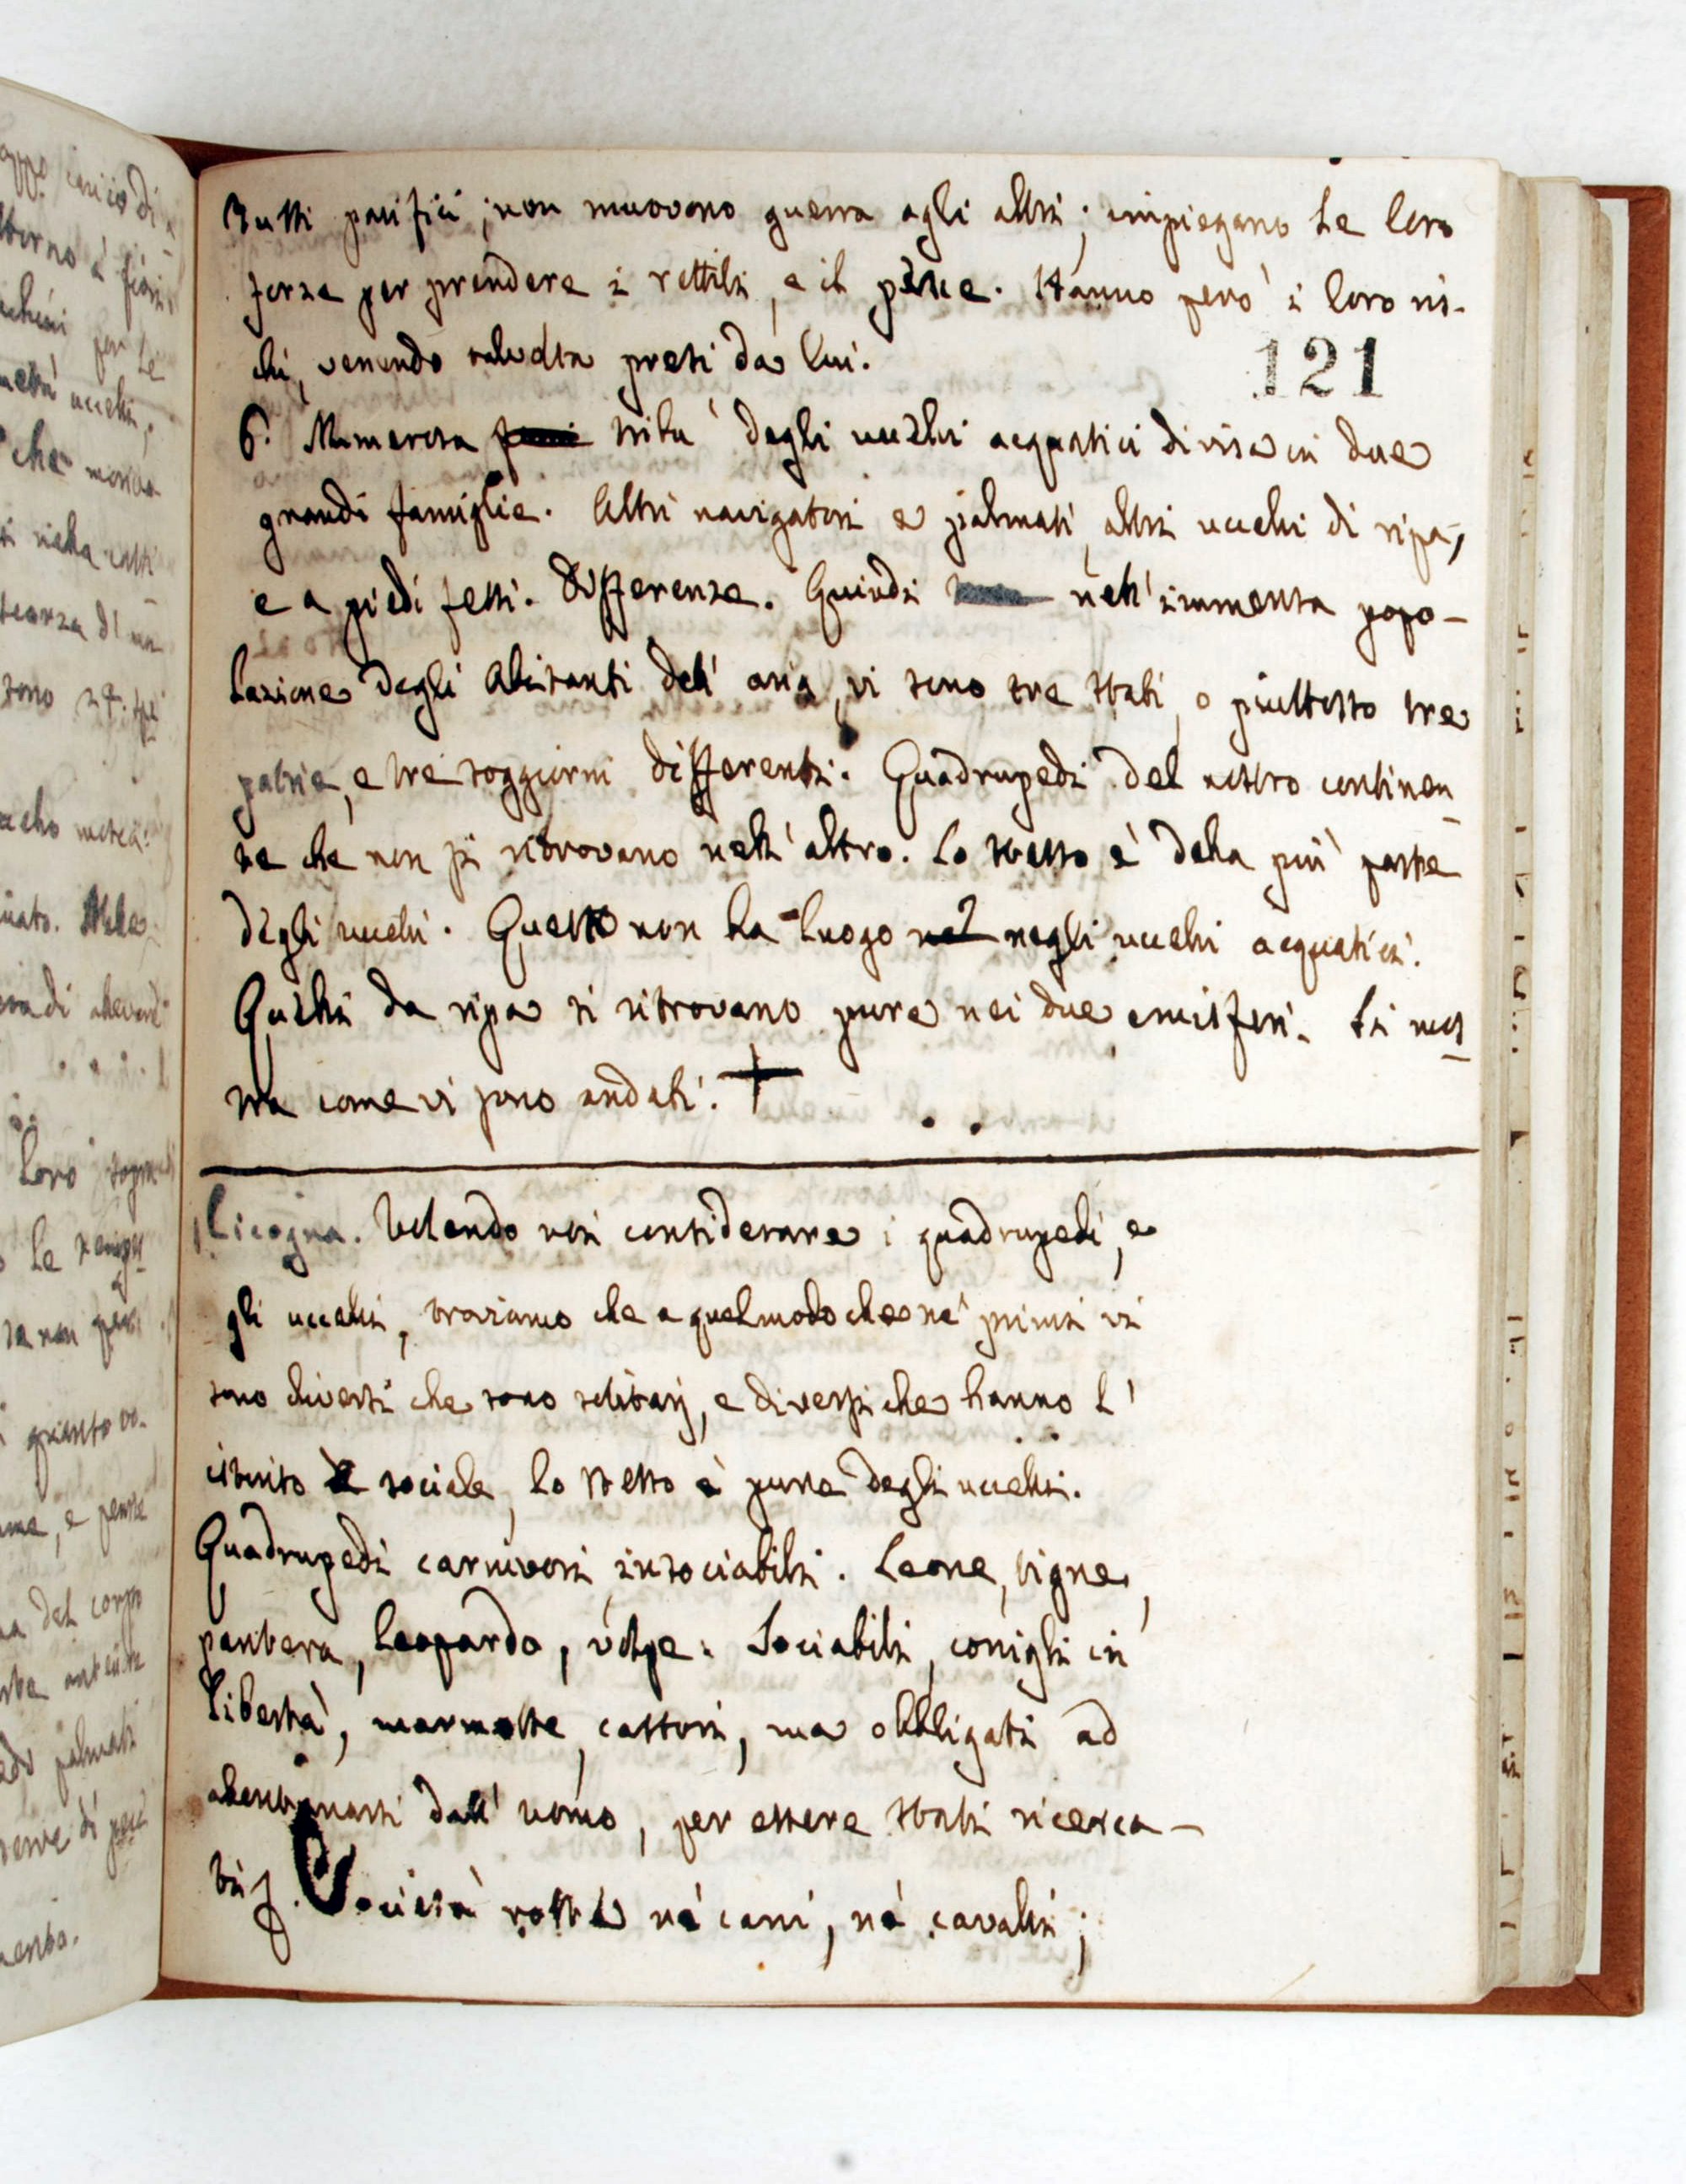 Tutti pacifici; non muovono guerra agli altri; impiegano le loro
forze per prendere i rettili, e il pesce. Hanno però i loro ris-
chi, venendo talvolta presi da lui.
121
6.° Numerosa tribù degli uccelli acquatici divisa in due
grandi famiglie. Altri navigatori e palmati, altri uccelli di ripa,
e a piedi fessi. Differenze. Quindi nell'immensa popo-
lazione degli abitanti dell'aria, vi sono tre stati, o piuttosto tre
patrie, e tre soggiorni differenti. Quadrupedi del nostro continen
te che non si ritrovano nell'altro. Lo stesso è della più parte
degli uccelli. Questo non ha luogo negli uccelli acquatici.
Quelli da ripa si ritrovano pure nei due emisferi. Si mos
tra come vi sono andati. +
Cicogna. Volendo noi considerare i quadrupedi, e
gli uccelli, troviamo che a quel modo che ne' primi vi
sono diversi che sono solitarj, e diversi che hanno l'
istinto sociale, lo stesso è pure degli uccelli.
Quadrupedi carnivori insociabili. Leone, tigre,
pantera, leopardo, volpe. Sociabili, conigli in
libertà, marmotte, castori, ma obbligati ad
allontanarsi dall'uomo, per essere stati ricerca-
ti. Società rotta né cani, né cavalli;